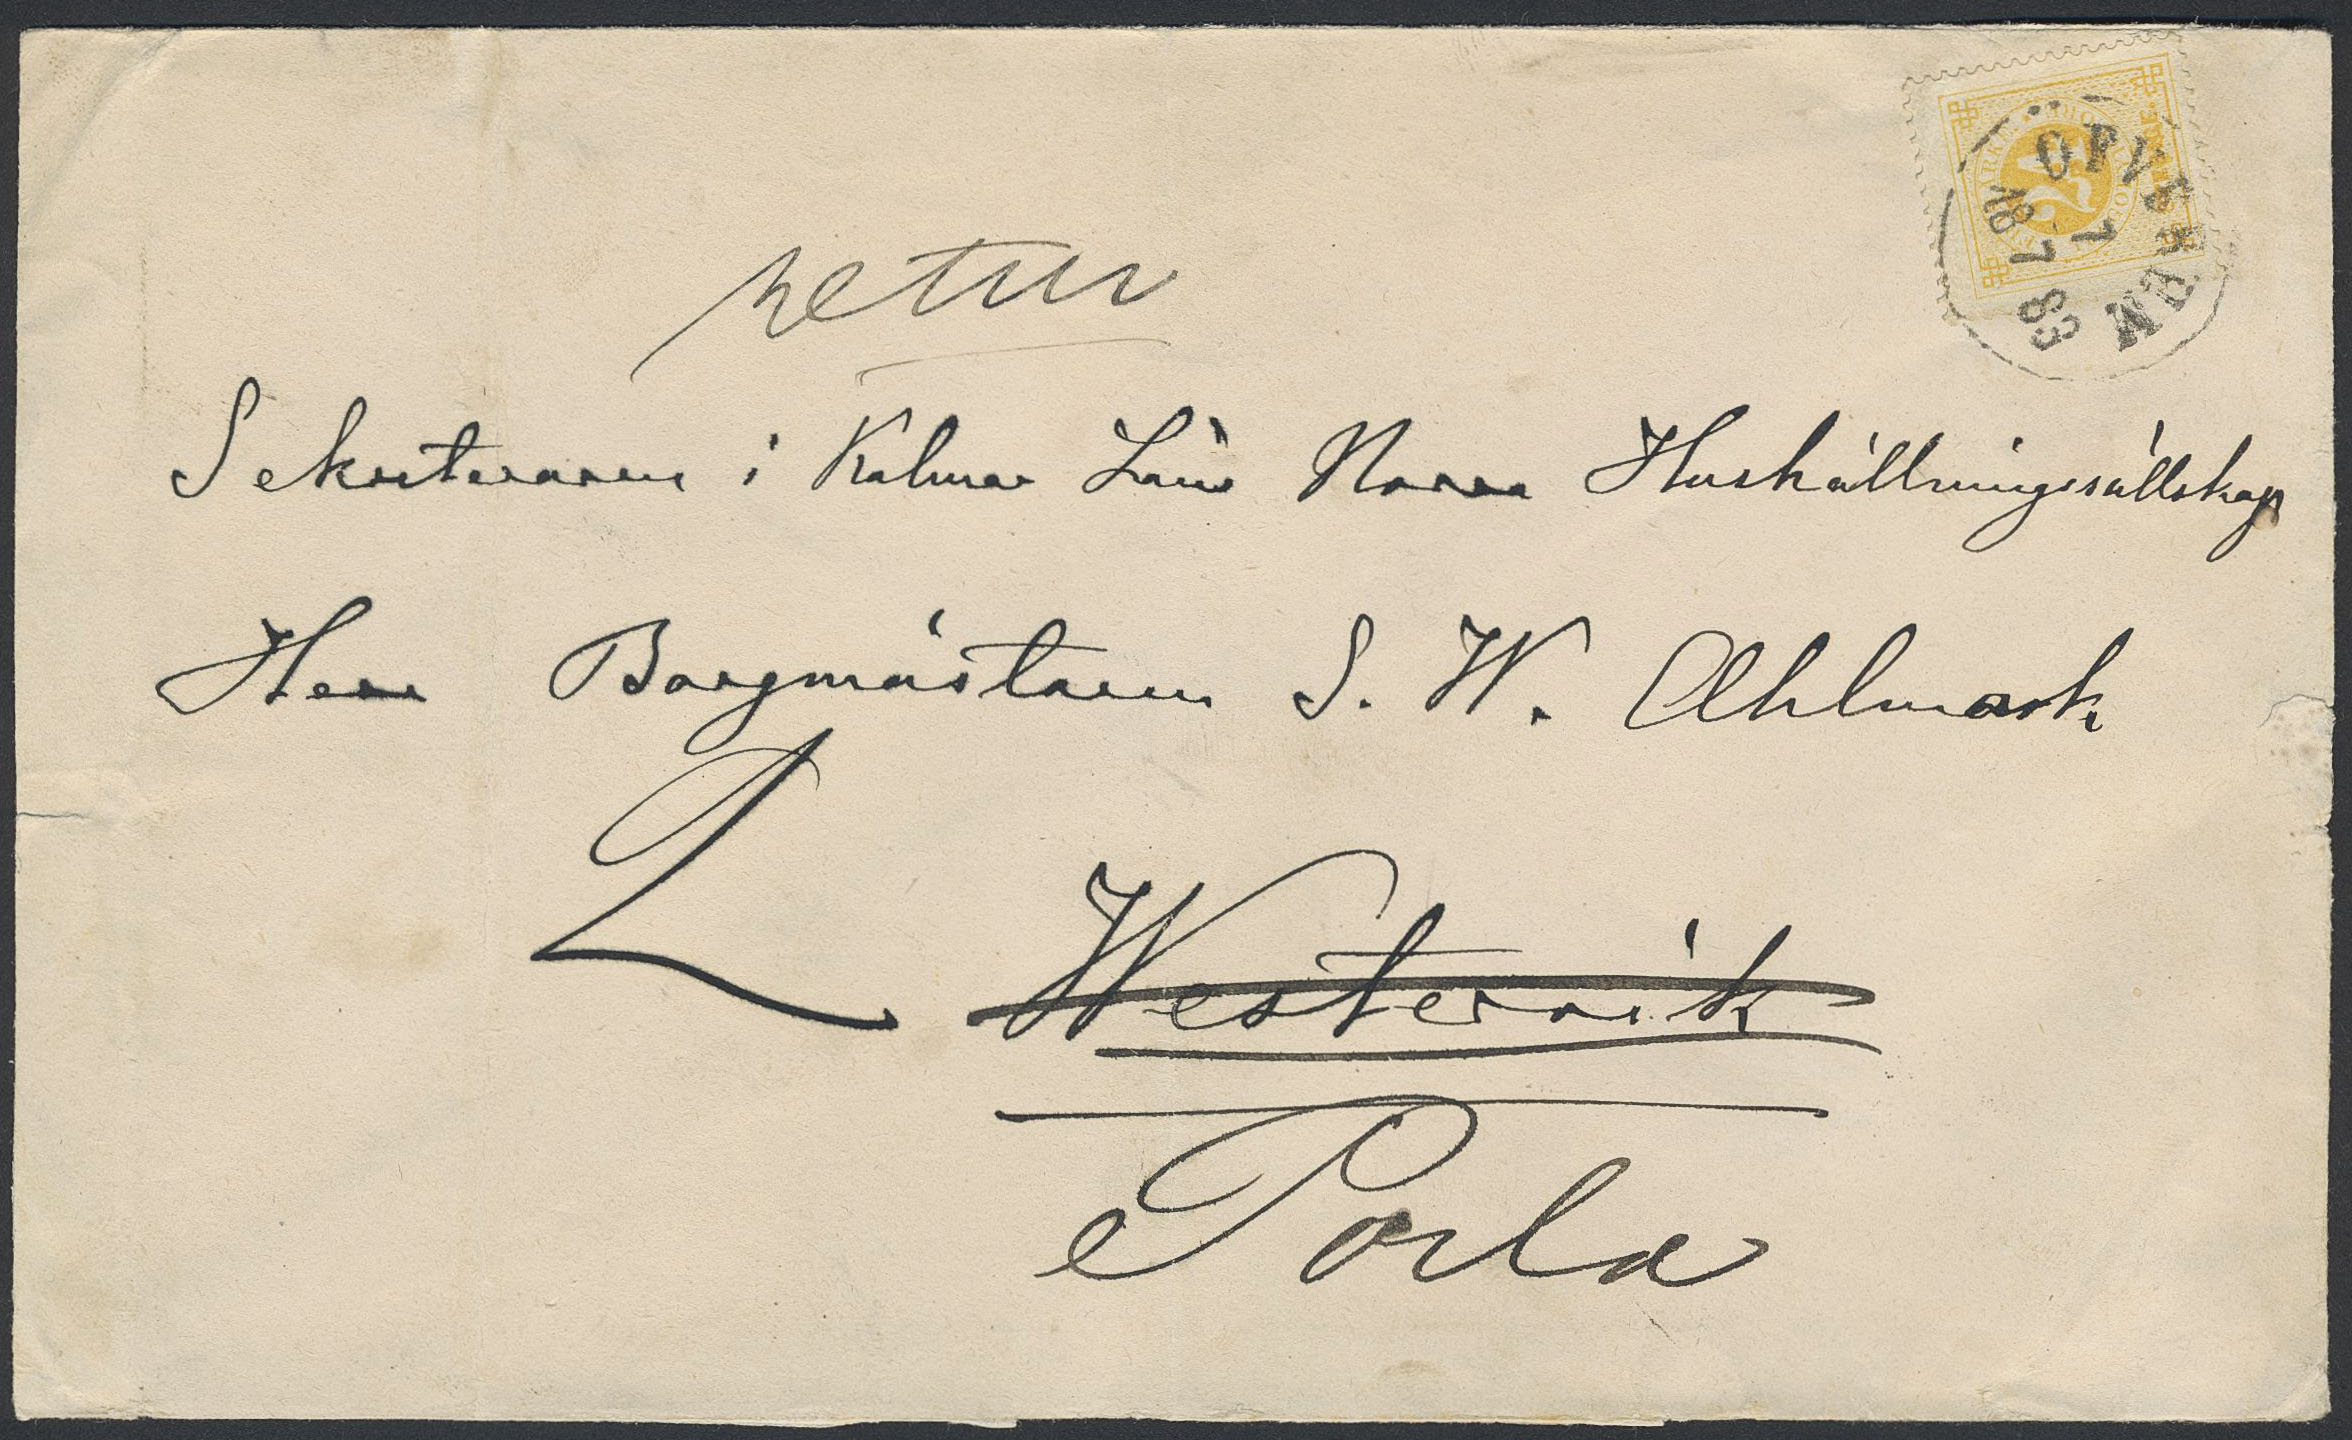 ÖFVERUM
7
7
1883
24
retur
Sekreteraren i Kalmar Läns Norra Hushållningssällskap
Herr Borgmästaren S. W. Ahlmark
Westervik
Porla